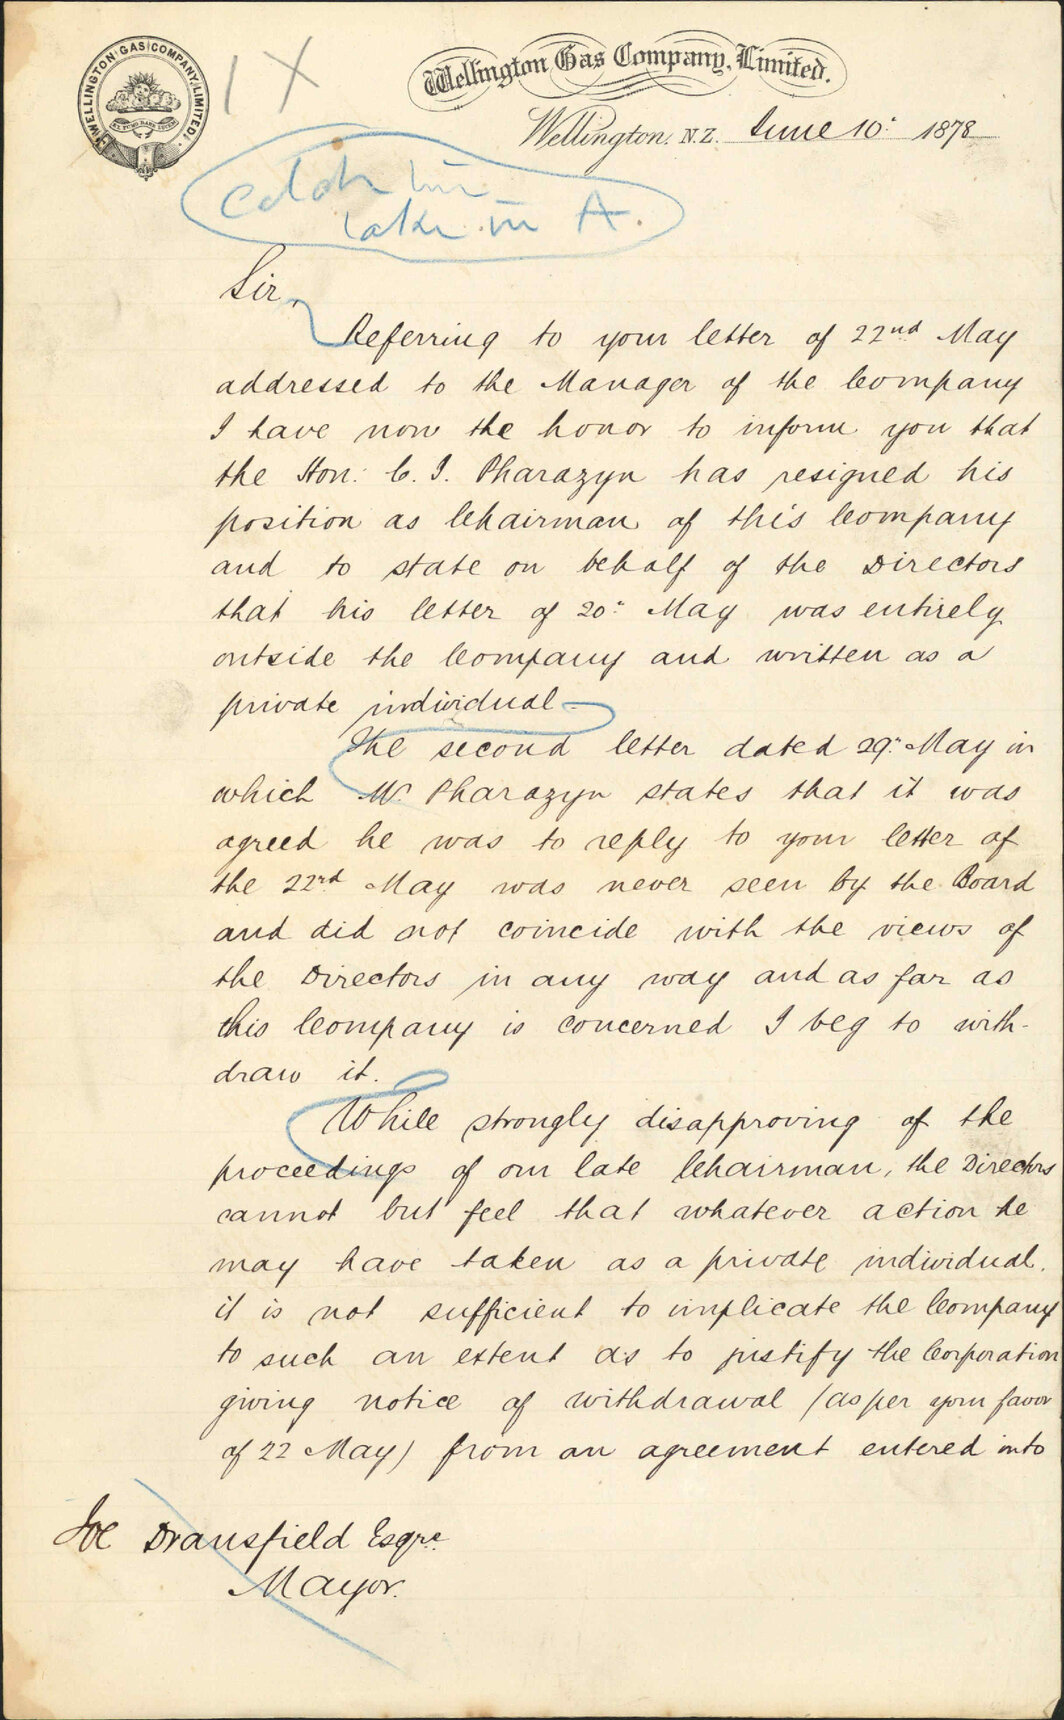 WELLINGTON GAS COMPANY LIMITED
EX FUMO DARE LUCEM
1 X
Wellington Gas Company, Limited.
Wellington. N.Z. June 10th 1878
Catch line
take in A.
Sir,
Referring to your letter of 22nd May
addressed to the Manager of the Company
I have now the honor to inform you that
the Hon: C. J. Pharazyn has resigned his
position as Chairman of this Company
and to state on behalf of the Directors
that his letter of 20th May was entirely
outside the Company and written as a
private individual
The second letter dated 29th May in
which Mr. Pharazyn states that it was
agreed he was to reply to your letter of
the 22nd May was never seen by the Board
and did not coincide with the views of
the Directors in any way and as far as
this Company is concerned I beg to with-
draw it.
While strongly disapproving of the
proceedings of our late Chairman, the Directors
cannot but feel that whatever action he
may have taken as a private individual,
it is not sufficient to implicate the Company
to such an extent as to justify the Corporation
giving notice of withdrawal (as per your favor
of 22 May) from an agreement entered into
Joe Dransfield Esqre.
Mayor.